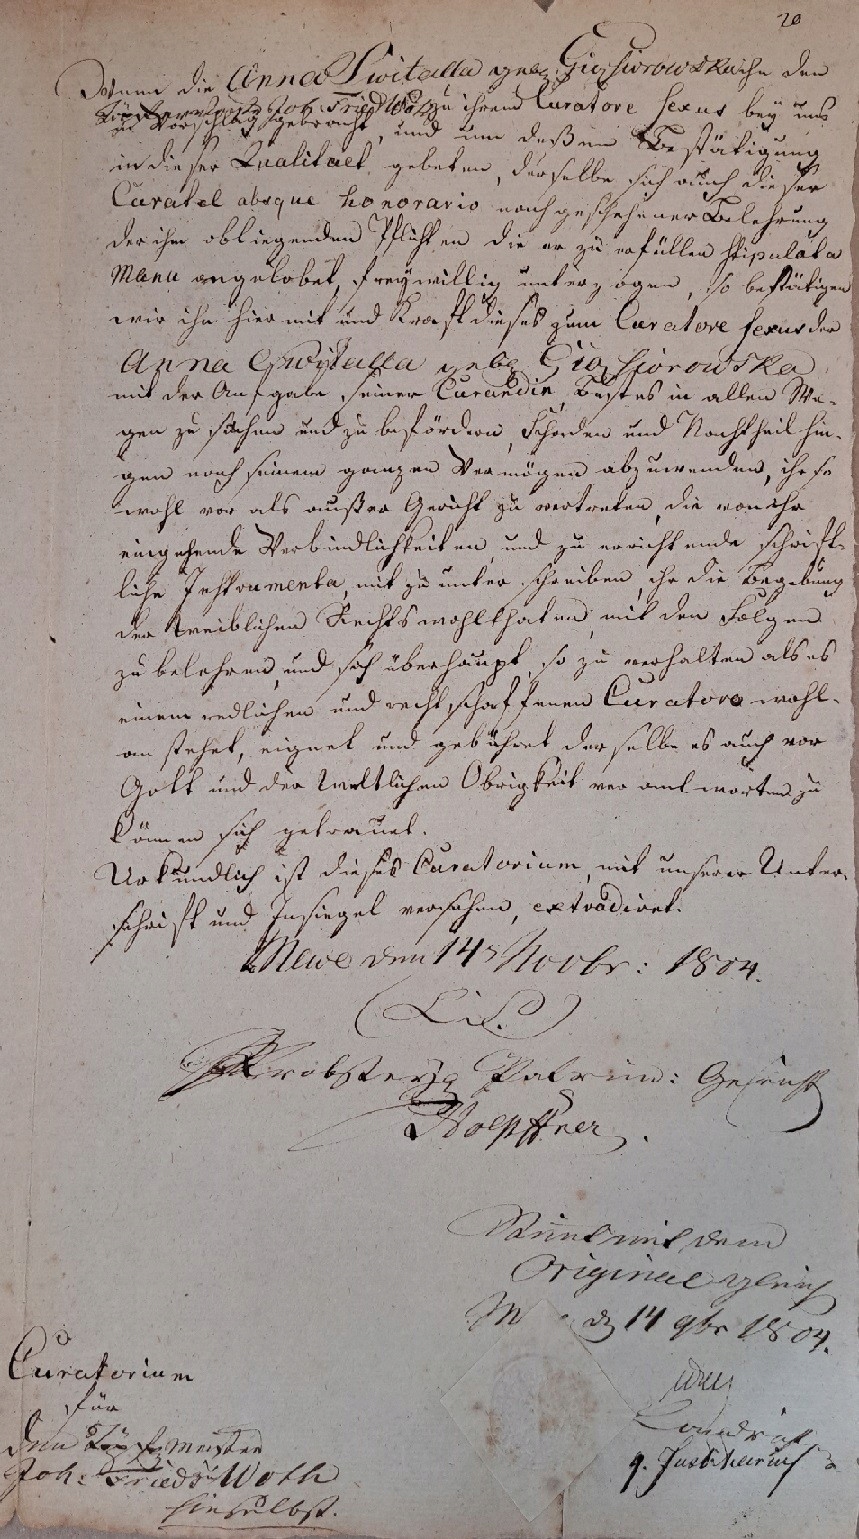 20
Wenn die Anna Switalla geb. Gio sche den
Töpfermeister Joh. Fried. Woth zu ihrem Curatore sexus bey uns
in Vorschlag gebracht, und um deßen Bestätigung
in dieser Qualitaet gebeten, derselbe sich auch dieser
Curatel absque honorario nach geschehener Belehrung
der ihm obliegenden Pflichten die er zu erfüllen stipulata
Manu angelobet, freywillig unterzogen, so bestätigen
wir ihn hiermit und Kraft dieses zum Curatore sexus der
Anna Switalla geb.
mit der Aufgabe seiner Curandin Bestes in allen We-
gen zu suchen und zu befördern, Schaden und Nachtheil hin-
gen nach seinem ganzen Vermögen abzuwenden, ihr so
wohl vor als außer Gericht zu vertreten, die von ihr
eingehende Verbindlichkeiten, und zu errichtende schrift-
liche Instrumenta, mit zu unterschreiben, ihr die Begebung
der weiblichen Rechtswohlthaten, mit den Folgen
zu belehren, und sich überhaupt, so zu verhalten als es
einem redlichen und rechtschaffenen Curatore wohl-
an stehet, eignet und gebühret derselbe es auch vor
Gott und der Weltlichen Obrigkeit verantworten zu
können sich getrauet.
Urkundlich ist dieses Curatorium, mit unserer Unter-
schrift und Insiegel versehen, extradiret.
Mewe den 14 Novbr: 1804.
(L. S.)
Probstey Patrim: Gericht
Hoepffner.
Stimt mit dem
Original gleich
M den 14 9br 1804.
Curatorium
für
den Töpfermeister
Joh. Fried. Woth
hieselbst.
q. Justitiarius